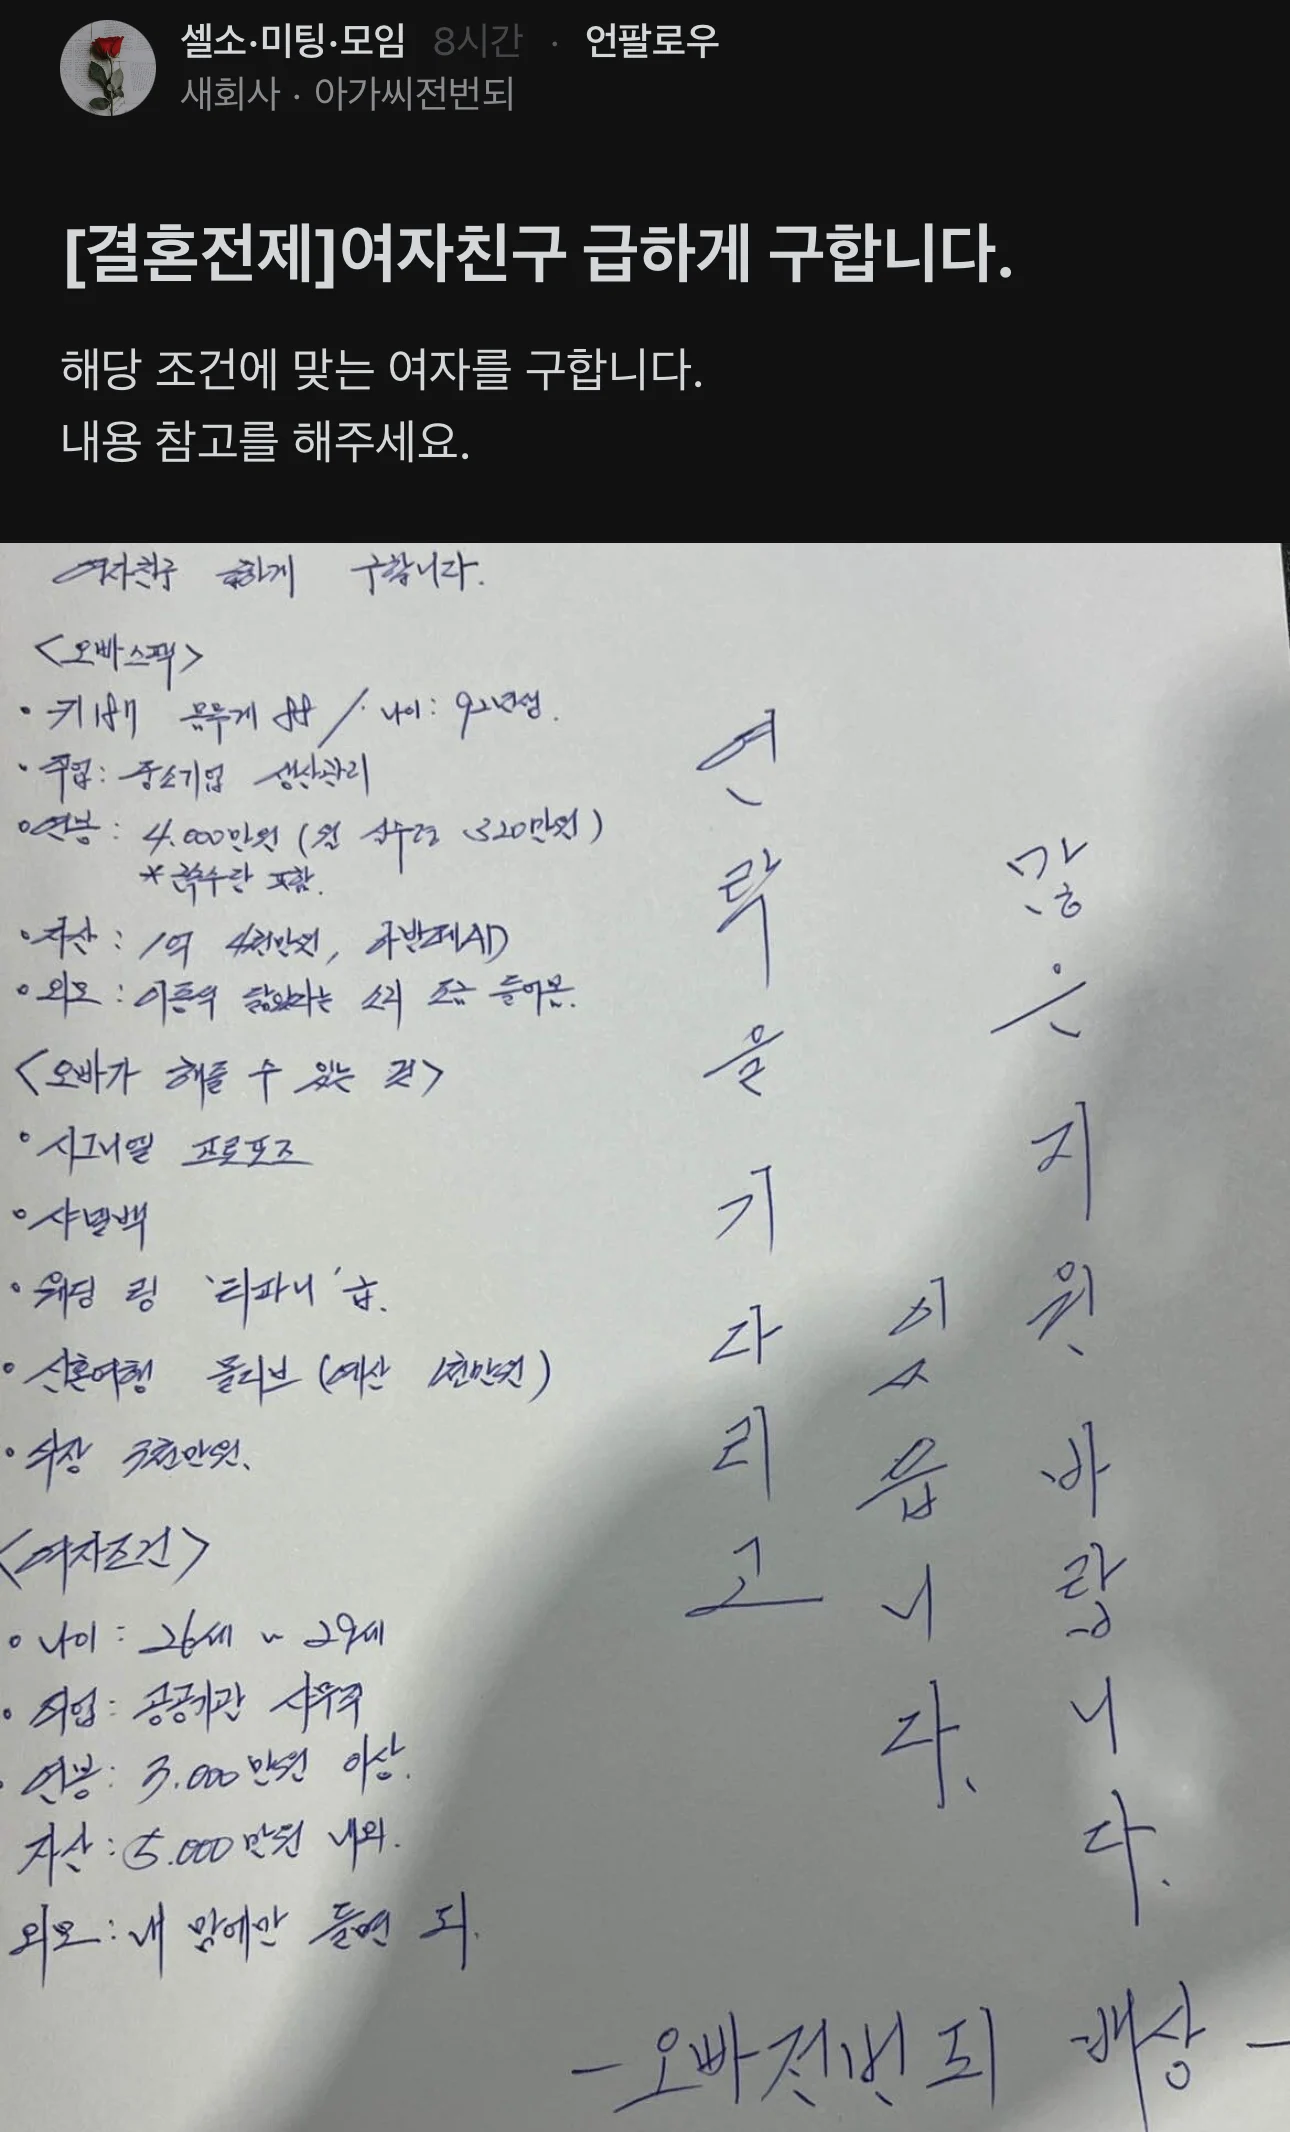 셀소·미팅·모임 8시간 · 언팔로우
새회사 · 아가씨전번되
[결혼전제]여자친구 급하게 구합니다.
해당 조건에 맞는 여자를 구합니다.
내용 참고를 해주세요.
여자친구 급하게 구합니다.
<오빠스펙>
• 키 187 몸무게 88 / 나이: 92년생.
• 직업: 중소기업 생산관리
• 연봉: 4.000만원 (월 실수령 320만원)
* 특수당 포함.
• 자산: 1억 4천만원, 아반떼AD
• 외모: 이동욱 닮았다는 소리 조금 들어봄.
<오빠가 해줄 수 있는 것>
• 시그니엘 프로포즈
• 샤넬백
• 웨딩 링 '티파니' 급.
• 신혼여행 몰디브 (예산 1천만원)
• 식장 3천만원.
<여자조건>
• 나이: 26세 ~ 29세
• 직업: 공공기관 사무직
• 연봉: 3.000만원 이상.
자산: 5.000만원 내외.
외모: 내 맘에만 들면 되.
연락을 기다리고
있습니다.
많은 지원 바랍니다.
- 오빠전번되 배상 -